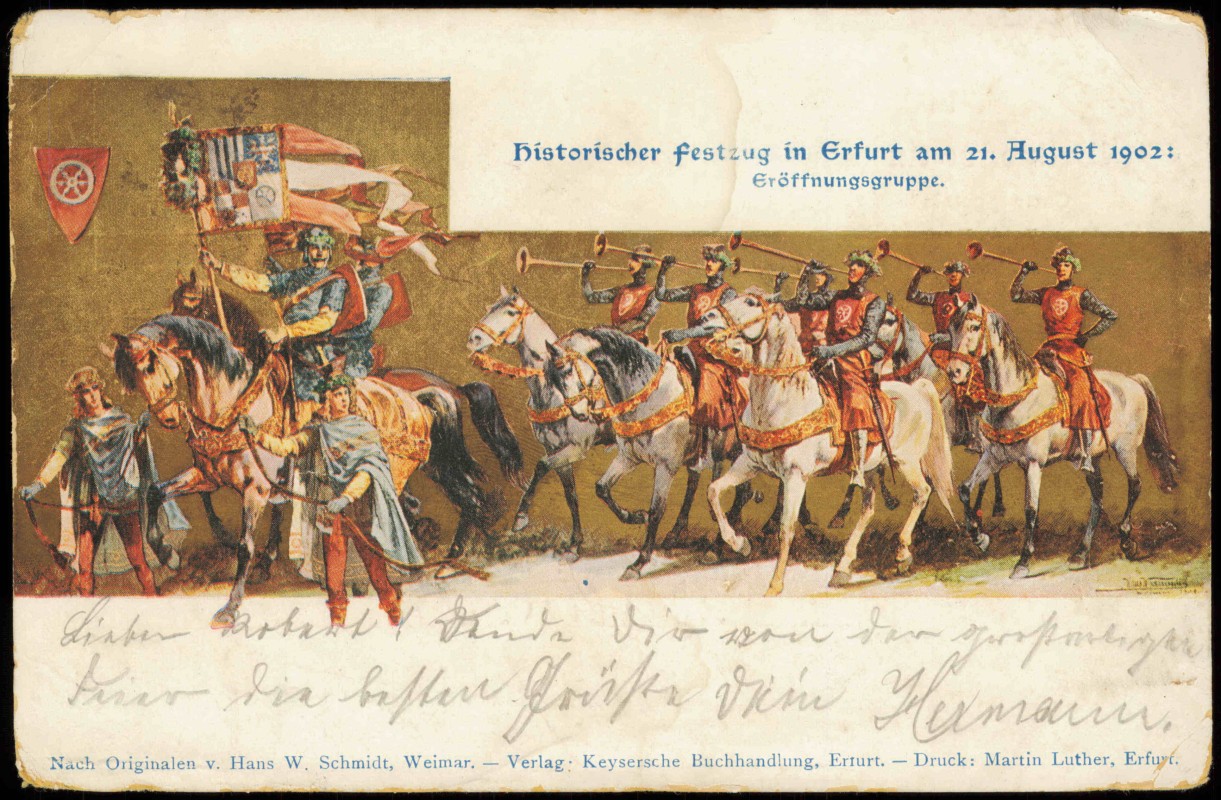 Historischer Festzug in Erfurt am 21. August 1902:
Eröffnungsgruppe.
Lieber Robert! Sende Dir von der großartigen
Feier die besten Grüße Dein Hermann.
Nach Originalen v. Hans W. Schmidt, Weimar. — Verlag: Keysersche Buchhandlung, Erfurt. — Druck: Martin Luther, Erfurt.